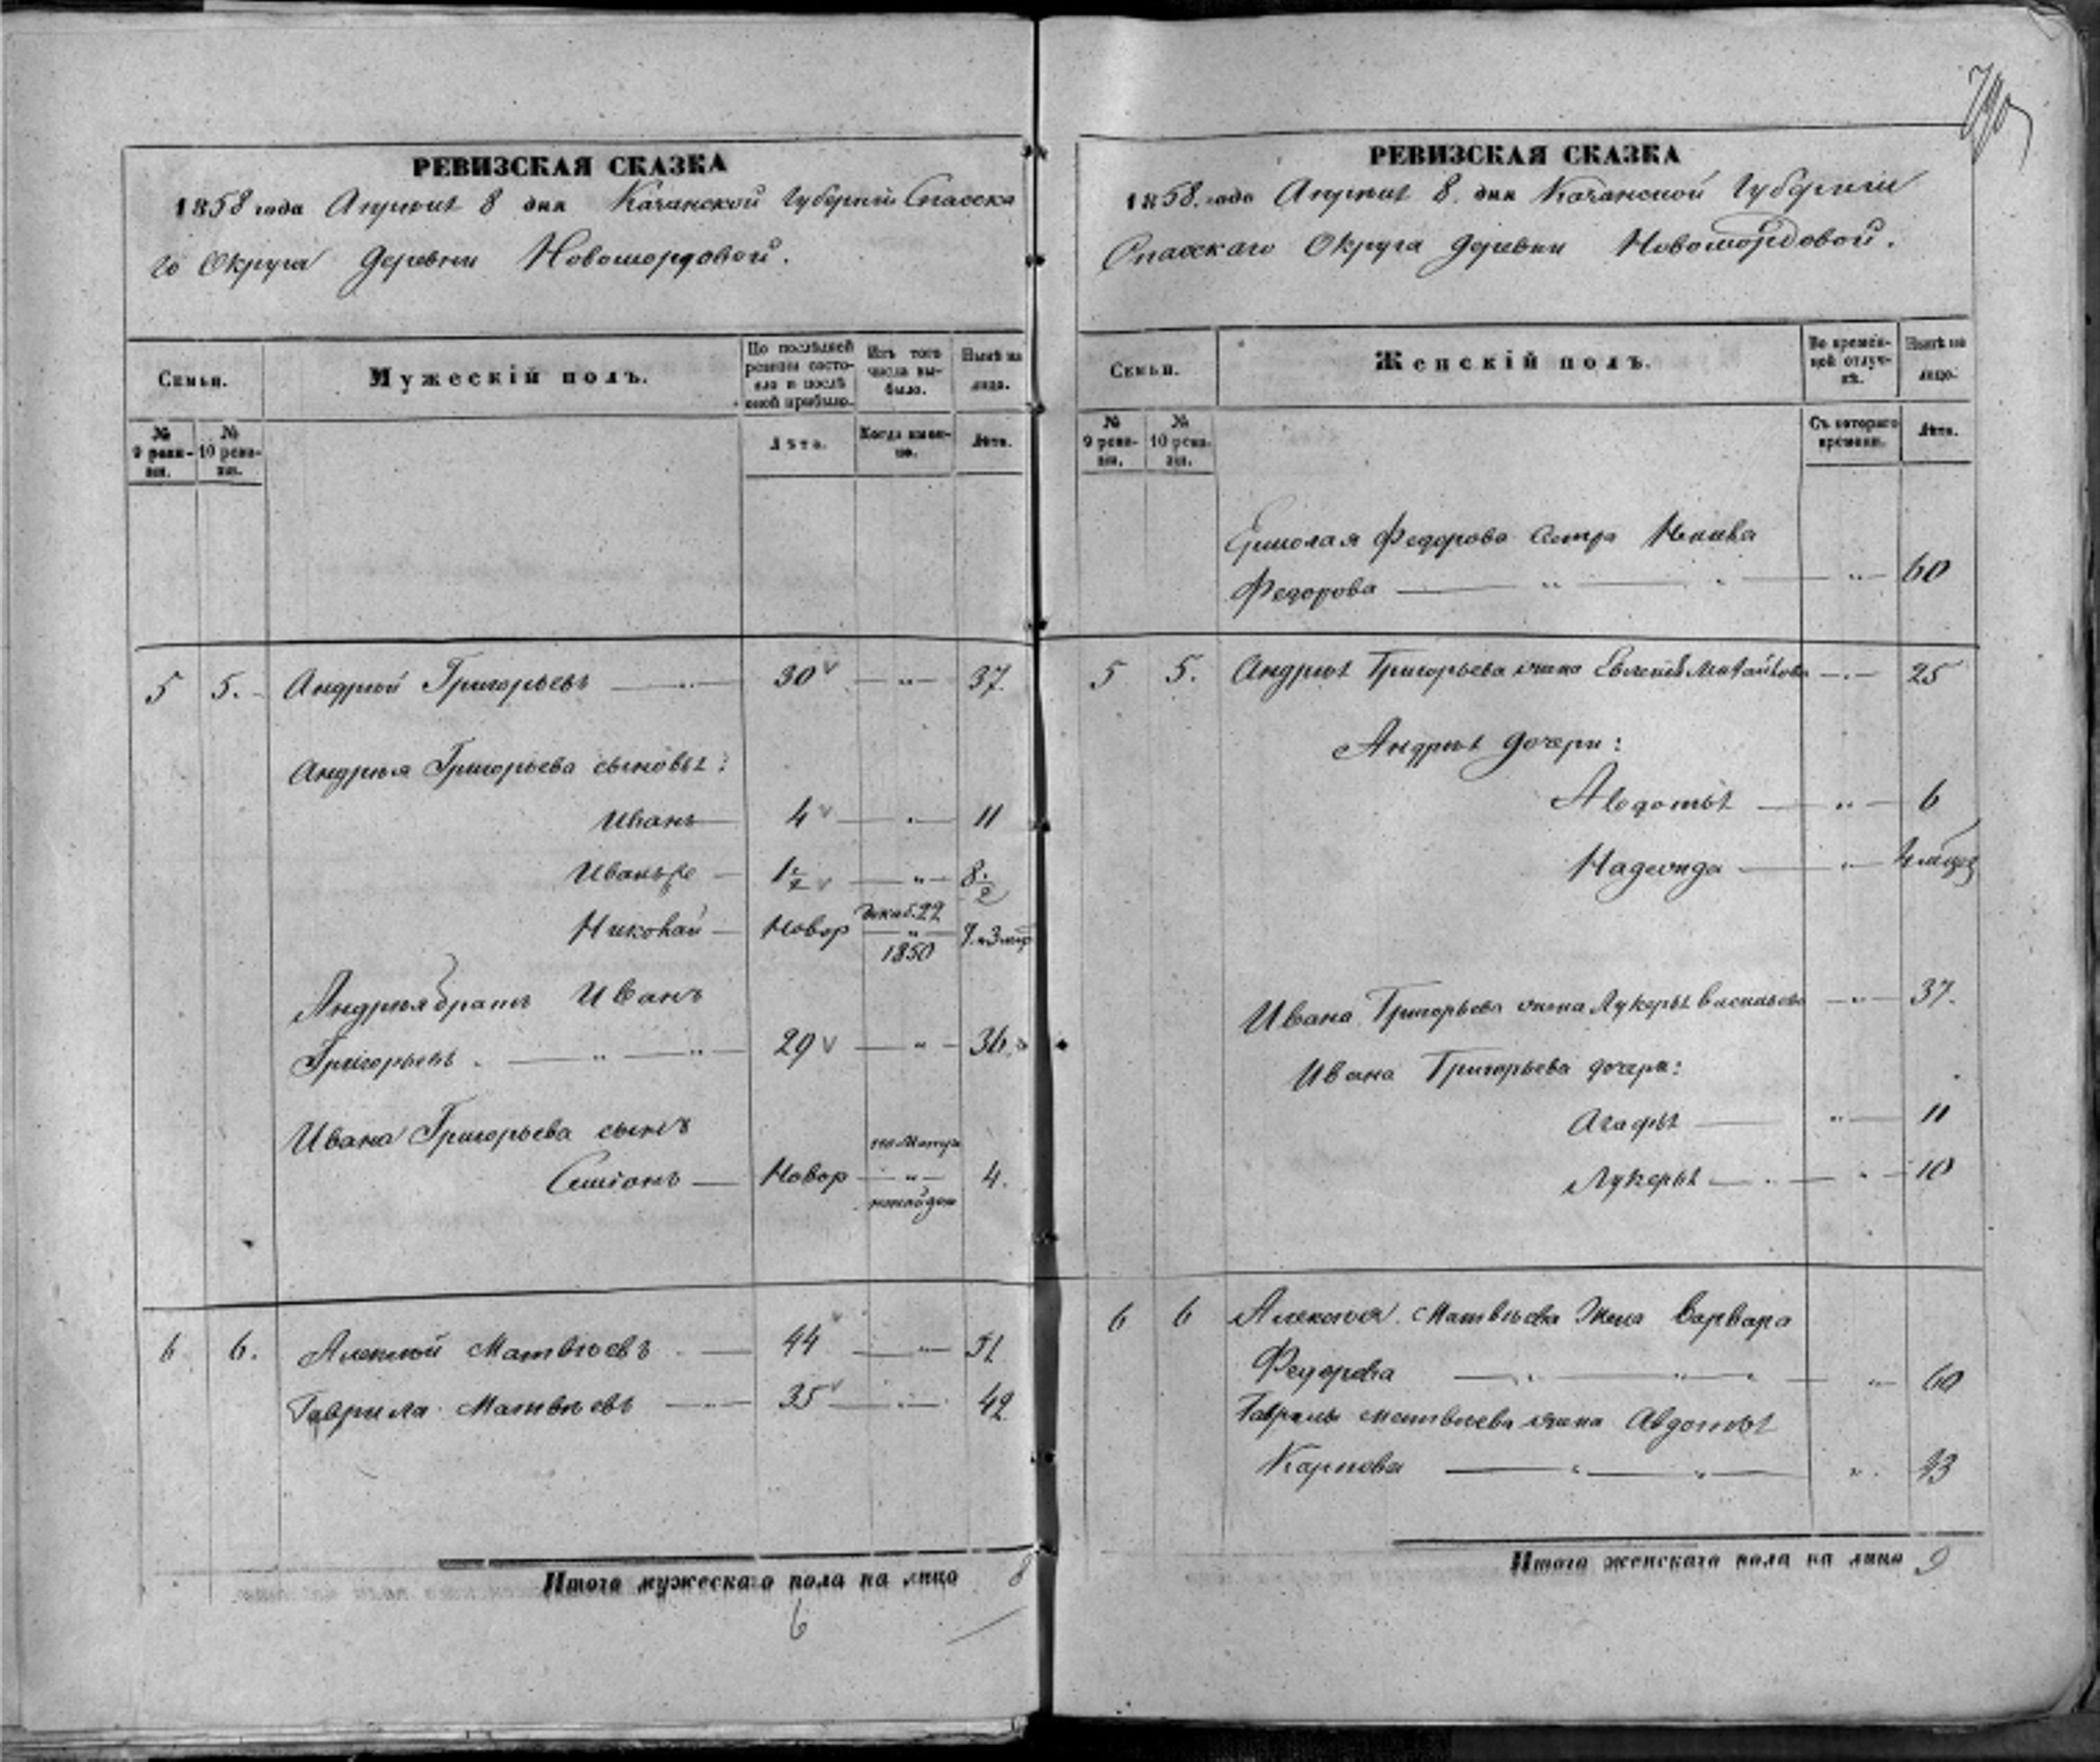 РЕВИЗСКАЯ СКАЗКА
1858 года Апреля 8 дня Казанской Губернiи Спасска
го Округа Деревни Новомордовой.
Семьи.
Мужескiй полъ.
По послѣдней ревизiи состояло и послѣ оной прибыло.
Изъ того числа выбыло.
Нынѣ на лицо.
№ 9 ревизiи.
№ 10 ревизiи.
Лѣта.
Когда именно.
Лѣта.
5 5. Андрей Григорьевъ 30 37.
Андрея Григорьева сыновья:
Иванъ 4 11
Иванъ 1½ 8½
Николай Новор Декаб. 22 1850 7 и 3 мѣс
Андрея братъ Иванъ
Григорьевъ. 29 36.
Ивана Григорьева сынъ
Симiонъ Новор по Метр ненайден 4.
6 6. Алексѣй Матвѣевъ 44 51
Гаврила Матвѣевъ 35 42
Итого мужескаго пола на лицо 8
6
РЕВИЗСКАЯ СКАЗКА
1858. года Апреля 8. дня Казанской Губернiи
Спасскаго Округа Деревни Новомордовой.
Семьи.
Женскiй полъ.
Во временной отлучкѣ.
Нынѣ на лицо.
№ 9 ревизiи.
№ 10 ревизiи.
Съ котораго времени.
Лѣта.
Ермолая Федорова сестра
Федорова 60
5 5. Андрея Григорьева жена 25
Андрея дочери:
Авдотья 6
Надежда 4 мѣсяц
Ивана Григорьева жена Лукерья Васильева 37.
Ивана Григорьева дочери:
Агафья 11
Лукерья 10
6 6 Алексѣя Матвѣева Жена Варвара
Федорова 60
Гаврилы Матвѣева жена Авдотья
Карпова 43
Итого женскаго пола на лицо 9